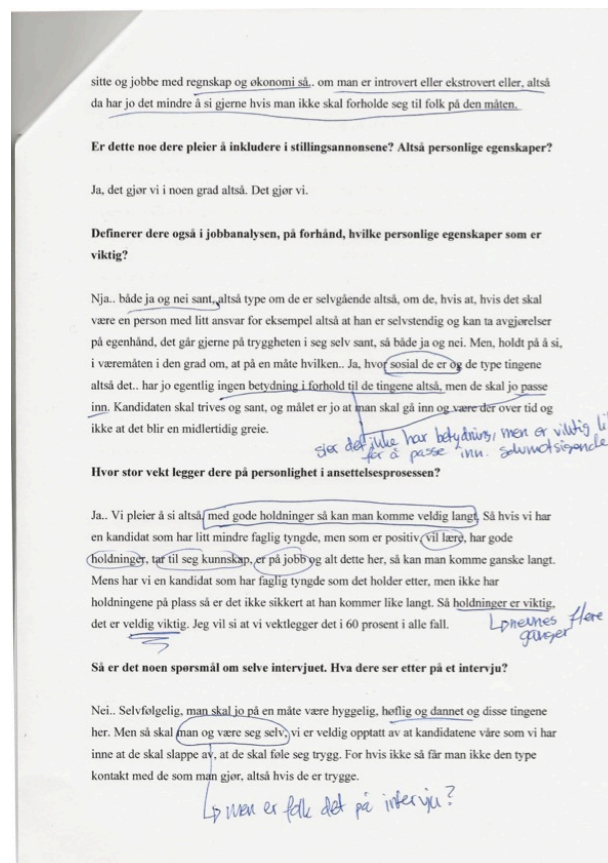 sitte og jobbe med regnskap og økonomi så.. om man er introvert eller ekstrovert eller, altså
da har jo det mindre å si gjerne hvis man ikke skal forholde seg til folk på den måten.
Er dette noe dere pleier å inkludere i stillingsannonsene? Altså personlige egenskaper?
Ja, det gjør vi i noen grad altså. Det gjør vi.
Definerer dere også i jobbanalysen, på forhånd, hvilke personlige egenskaper som er
viktig?
Nja.. både ja og nei sant, altså type om de er selvgående altså, om de, hvis at, hvis det skal
være en person med litt ansvar for eksempel altså at han er selvstendig og kan ta avgjørelser
på egenhånd, det går gjerne på tryggheten i seg selv sant, så både ja og nei. Men, holdt på å si,
i væremåten i den grad om, at på en måte hvilken.. Ja, hvor sosial de er og de type tingene
altså det.. har jo egentlig ingen betydning i forhold til de tingene altså, men de skal jo passe
inn. Kandidaten skal trives og sant, og målet er jo at man skal gå inn og være der over tid og
ikke at det blir en midlertidig greie.
sier det ikke har betydning, men er viktig li
for å passe inn. selvmotsigende
Hvor stor vekt legger dere på personlighet i ansettelsesprosessen?
Ja.. Vi pleier å si altså, med gode holdninger så kan man komme veldig langt. Så hvis vi har
en kandidat som har litt mindre faglig tyngde, men som er positiv, vil lære, har gode
holdninger, tar til seg kunnskap, er på jobb og alt dette her, så kan man komme ganske langt.
Mens har vi en kandidat som har faglig tyngde som det holder etter, men ikke har
holdningene på plass så er det ikke sikkert at han kommer like langt. Så holdninger er viktig,
det er veldig viktig. Jeg vil si at vi vektlegger det i 60 prosent i alle fall.
nevnes flere
ganger
Så er det noen spørsmål om selve intervjuet. Hva dere ser etter på et intervju?
Nei.. Selvfølgelig, man skal jo på en måte være hyggelig, høflig og dannet og disse tingene
her. Men så skal man og være seg selv, vi er veldig opptatt av at kandidatene våre som vi har
inne at de skal slappe av, at de skal føle seg trygg. For hvis ikke så får man ikke den type
kontakt med de som man gjør, altså hvis de er trygge.
men er folk det på intervju?